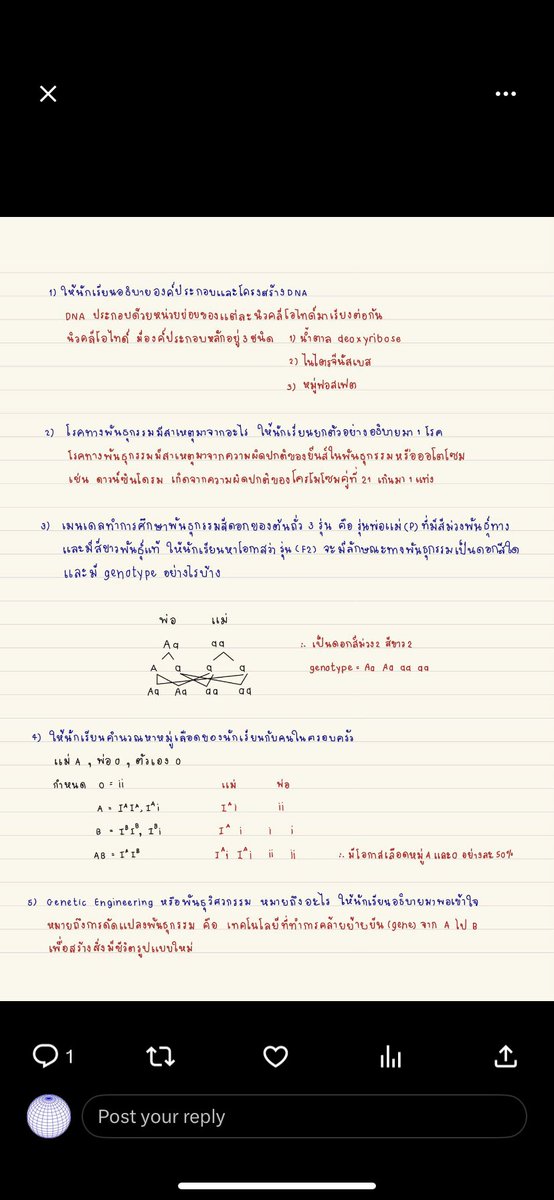 1) ให้นักเรียนอธิบายองค์ประกอบและโครงสร้าง DNA
DNA ประกอบด้วยหน่วยย่อยของแต่ละนิวคลีโอไทด์มาเรียงต่อกัน
นิวคลีโอไทด์ มีองค์ประกอบหลักอยู่ 3 ชนิด 1) น้ำตาล deoxyribose
2) ไนโตรจีนัสเบส
3) หมู่ฟอสเฟต
2) โรคทางพันธุกรรมมีสาเหตุมาจากอะไร ให้นักเรียนยกตัวอย่างอธิบายมา 1 โรค
โรคทางพันธุกรรมมีสาเหตุมาจากความผิดปกติของยีนส์ในพันธุกรรมหรือออโตโซม
เช่น ดาวน์ซินโดรม เกิดจากความผิดปกติของโครโมโซมคู่ที่ 21 เกินมา 1 แท่ง
3) เมนเดลทำการศึกษาพันธุกรรมสีดอกของต้นถั่ว 3 รุ่น คือ รุ่นพ่อแม่ (P) ที่มีสีม่วงพันธุ์ทาง
และมีสีขาวพันธุ์แท้ ให้นักเรียนหาโอกาสว่ารุ่น (F2) จะมีลักษณะทางพันธุกรรมเป็นดอกสีใด
และมี genotype อย่างไรบ้าง
พ่อ แม่
Aa aa ∴ เป็นดอกสีม่วง 2 สีขาว 2
A a a a genotype = Aa Aa aa aa
Aa Aa aa aa
4) ให้นักเรียนคำนวณหาหมู่เลือดของนักเรียนกับคนในครอบครัว
แม่ A , พ่อ O , ตัวเอง O
กำหนด O = ii แม่ พ่อ
A = IᴬIᴬ, Iᴬi Iᴬi ii
B = IᴮIᴮ, Iᴮi Iᴬ i i i
AB = IᴬIᴮ Iᴬi Iᴬi ii ii ∴ มีโอกาสเลือดหมู่ A และ O อย่างละ 50%
5) Genetic Engineering หรือพันธุวิศวกรรม หมายถึงอะไร ให้นักเรียนอธิบายมาพอเข้าใจ
หมายถึงการดัดแปลงพันธุกรรม คือ เทคโนโลยีที่ทำการคล้ายย้ายยีน (gene) จาก A ไป B
เพื่อสร้างสิ่งมีชีวิตรูปแบบใหม่
1
Post your reply